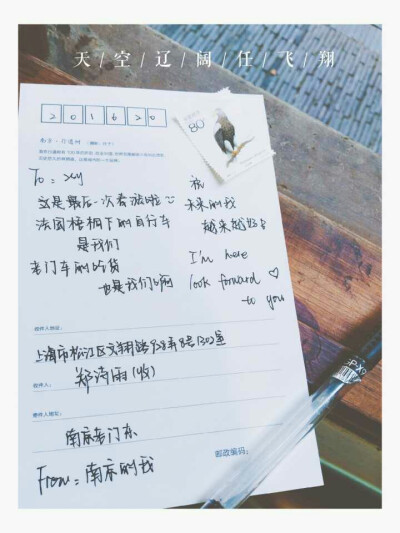 天/空/辽/阔/任/飞/翔
201620
80
To: xy
这是最后一次看海啦
法国梧桐下的自行车
是我们
老门东的吃货
也是我们啊
祝
未来的我
越来越好
I'm here
look forward
to you
收件人地址:
上海市松江区文翔路938弄8号1302室
收件人:
郑诗雨(收)
寄件人地址:
南京老门东
邮政编码:
From: 南京的我